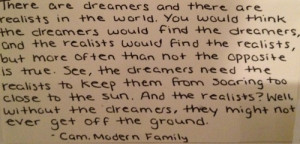 There are dreamers and there are
realists in the world. You would think
the dreamers would find the dreamers,
and the realists would find the realists,
but more often than not the opposite
is true. See, the dreamers need the
realists to keep them from soaring too
close to the sun. And the realists? Well
without the dreamers, they might not
ever get off the ground.
- Cam. Modern Family